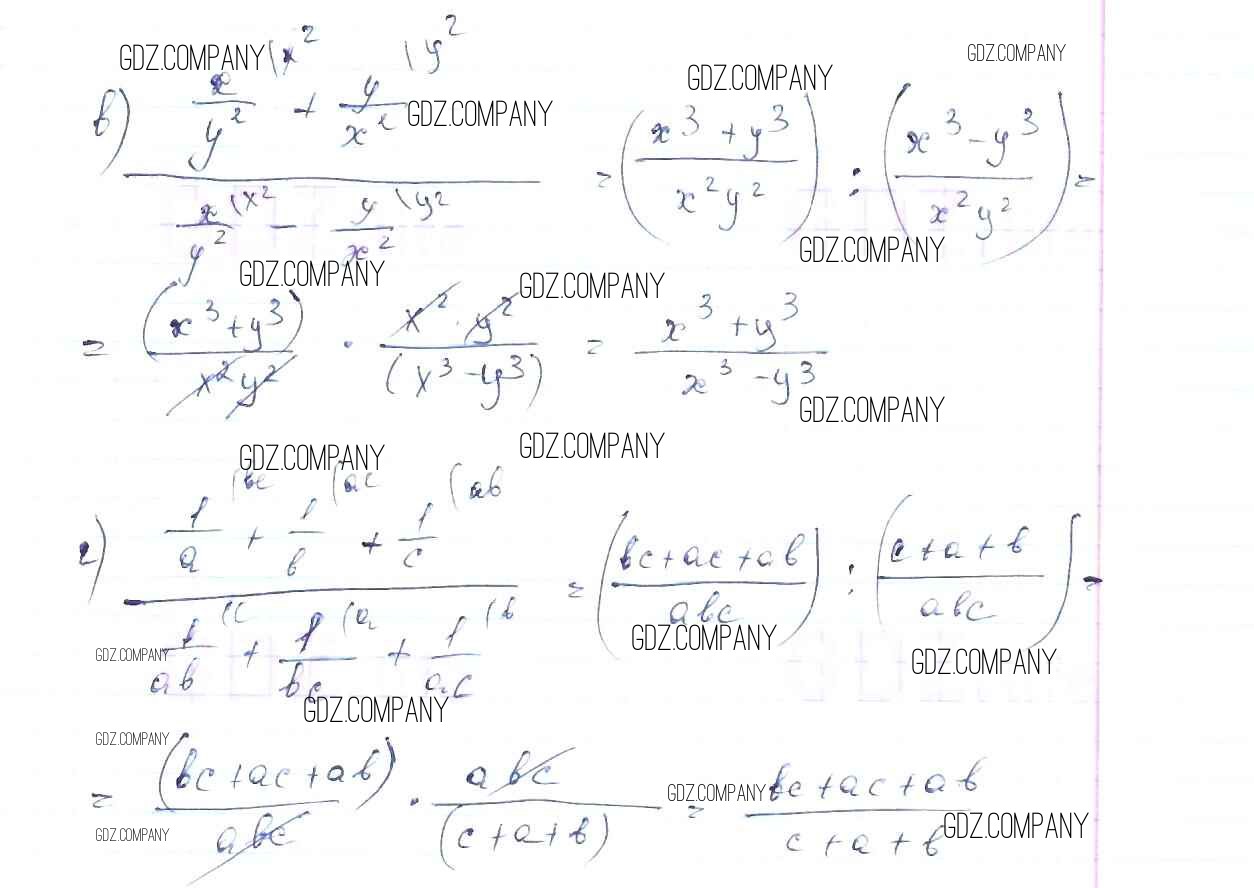 GDZ.COMPANY \x² \y² GDZ.COMPANY GDZ.COMPANY
в) (x/y² + y/x²) / (x/y² \x² − y/x² \y²) = ((x³ + y³)/(x²y²)) : ((x³ − y³)/(x²y²)) =
GDZ.COMPANY
GDZ.COMPANY
GDZ.COMPANY GDZ.COMPANY
= (x³ + y³)/(x²y²) · (x² · y²)/(x³ − y³) = (x³ + y³)/(x³ − y³)
GDZ.COMPANY
GDZ.COMPANY GDZ.COMPANY
г) (1/a \вc + 1/в \ac + 1/c \aв) / (1/aв \c + 1/вc \a + 1/ac \в) = ((вc + ac + aв)/(aвc)) : ((c + a + в)/(aвc)) =
GDZ.COMPANY GDZ.COMPANY GDZ.COMPANY
GDZ.COMPANY
GDZ.COMPANY
= (вc + ac + aв)/(aвc) · aвc/(c + a + в) = (вc + ac + aв)/(c + a + в)
GDZ.COMPANY GDZ.COMPANY GDZ.COMPANY